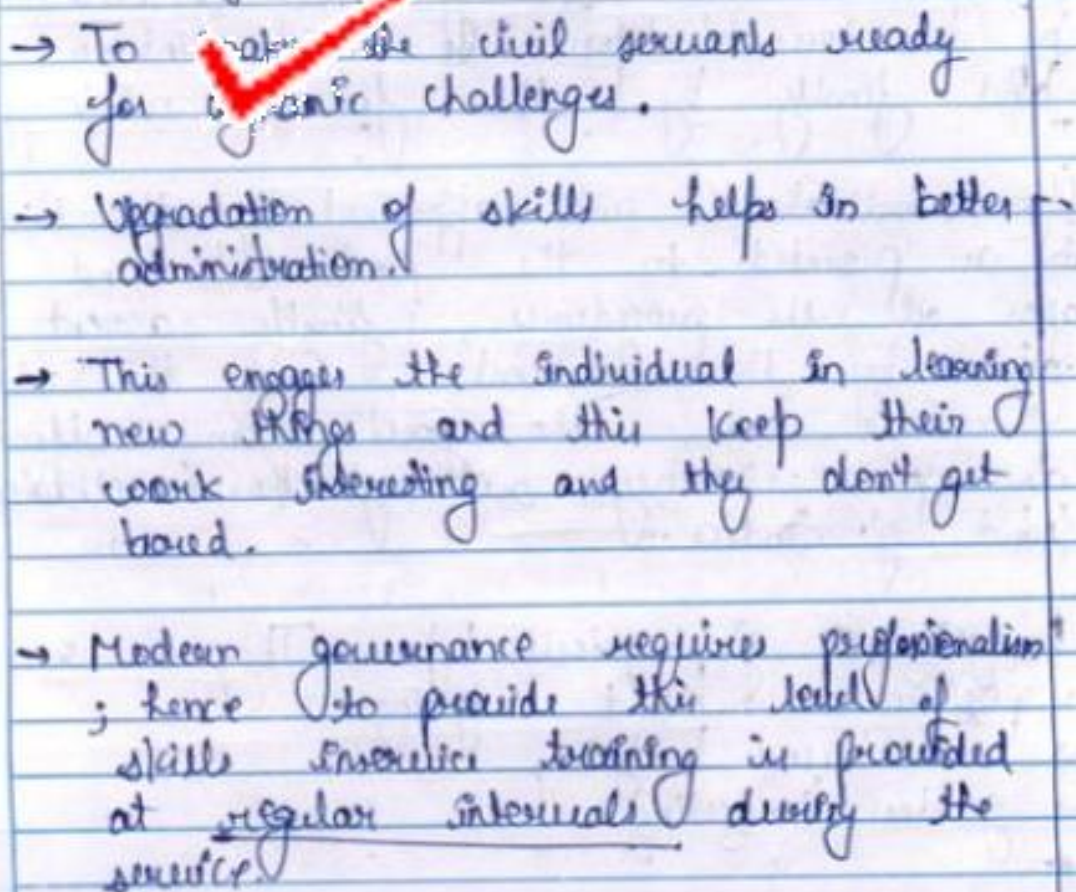 → To the civil servants ready
for challenges.
→ Upgradation of skills helps in better
administration.
→ This engages the individual in learning
new things and this keep their
work interesting and they don't get
bored.
→ Modern governance requires professionalism
; hence to provide this level of
skills inservice training is provided
at regular intervals during the
service.